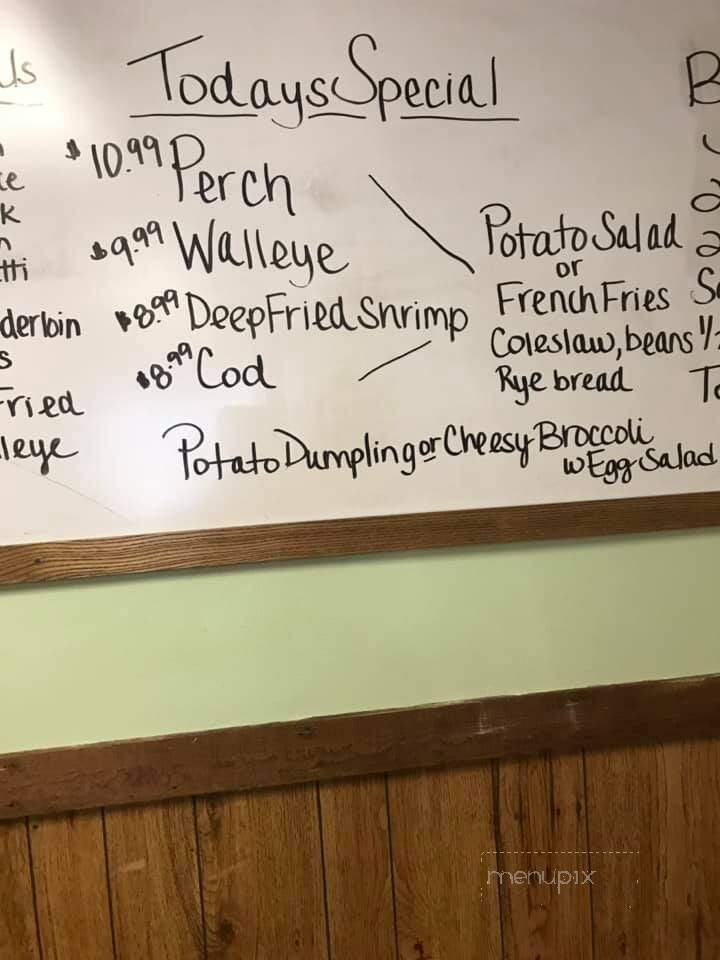 Todays Special
$10.99 Perch
$9.99 Walleye
$8.99 Deep Fried Shrimp
$8.99 Cod
Potato Salad
or
French Fries
Coleslaw, beans
Rye bread
Potato Dumpling or Cheesy Broccoli
w Egg Salad
derbin
Fried
lleye
menupix